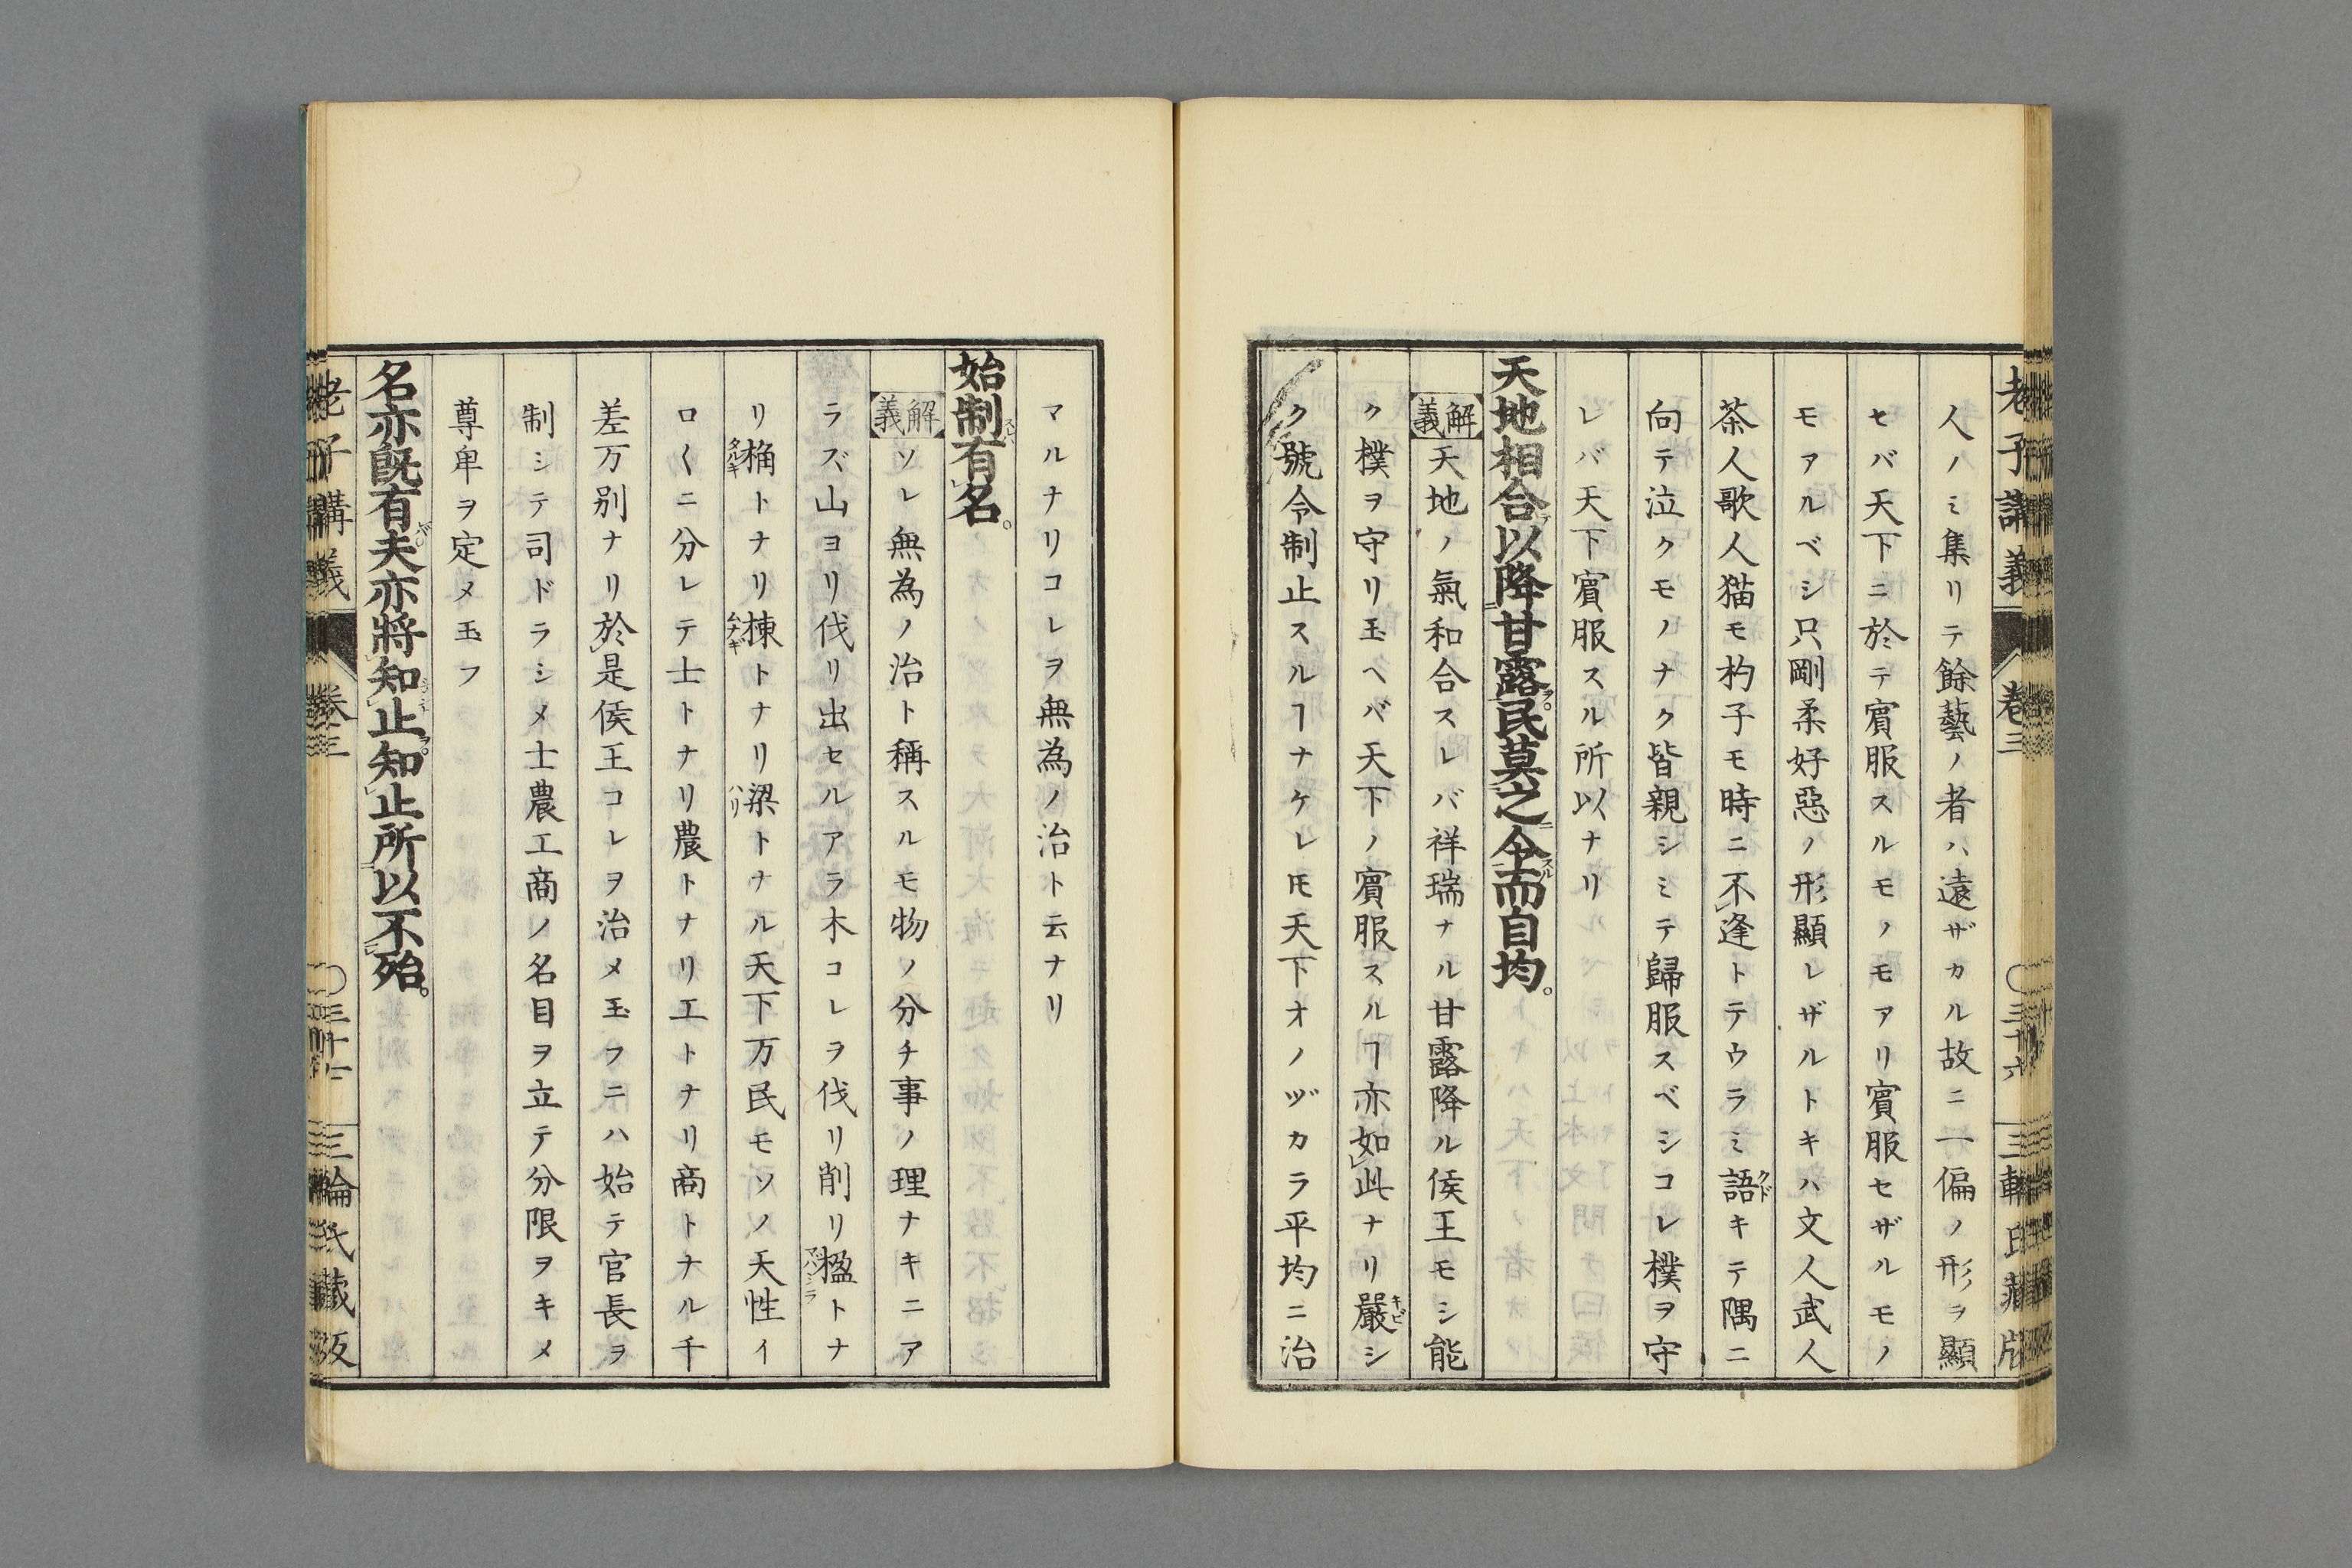 老子講義 卷三 〇三十六 三輪氏藏版
人ノミ集リテ餘藝ノ者ハ遠ザカル故ニ一偏ノ形ヲ顯
セバ天下ニ於テ賓服スルモノモアリ賓服セザルモノ
モアルベシ只剛柔好惡ノ形顯レザルトキハ文人武人
茶人歌人猫モ杓子モ時ニ不レ逢トテウラミ語クドキテ隅ニ
向テ泣クモノナク皆親シミテ歸服スベシコレ樸ヲ守
レバ天下賓服スル所以ナリ
天地相合テ以降ニ甘露ヲ。民莫之ニ令スル而自均。
解義 天地ノ氣和合スレバ祥瑞ナル甘露降ル侯王モシ能
ク樸ヲ守リ玉ヘバ天下ノ賓服スルヿ亦如レ此ナリ嚴キビシ
ク號令制止スルヿナケレ𪜈天下オノヅカラ平均ニ治
マルナリコレヲ無為ノ治ト云ナリ
始制有名。
解義 ソレ無為ノ治ト稱スルモ物ノ分チ事ノ理ナキニア
ラズ山ヨリ伐リ出セルアラ木コレラ伐リ削リ楹ハシラトナ
リ桷タルキトナリ棟ムナギトナリ梁ハリトナル天下万民モソノ天性イ
ロ〱ニ分レテ士トナリ農トナリ工トナリ商トナル千
差万別ナリ於レ是侯王コレヲ治メ玉フニハ始テ官長ヲ
制シテ司ドラシメ士農工商ノ名目ヲ立テ分限ヲキメ
尊卑ヲ定メ玉フ
名亦既有夫亦將知止知止所以不殆。
老子講義 卷三 〇三十七 三輪氏藏版